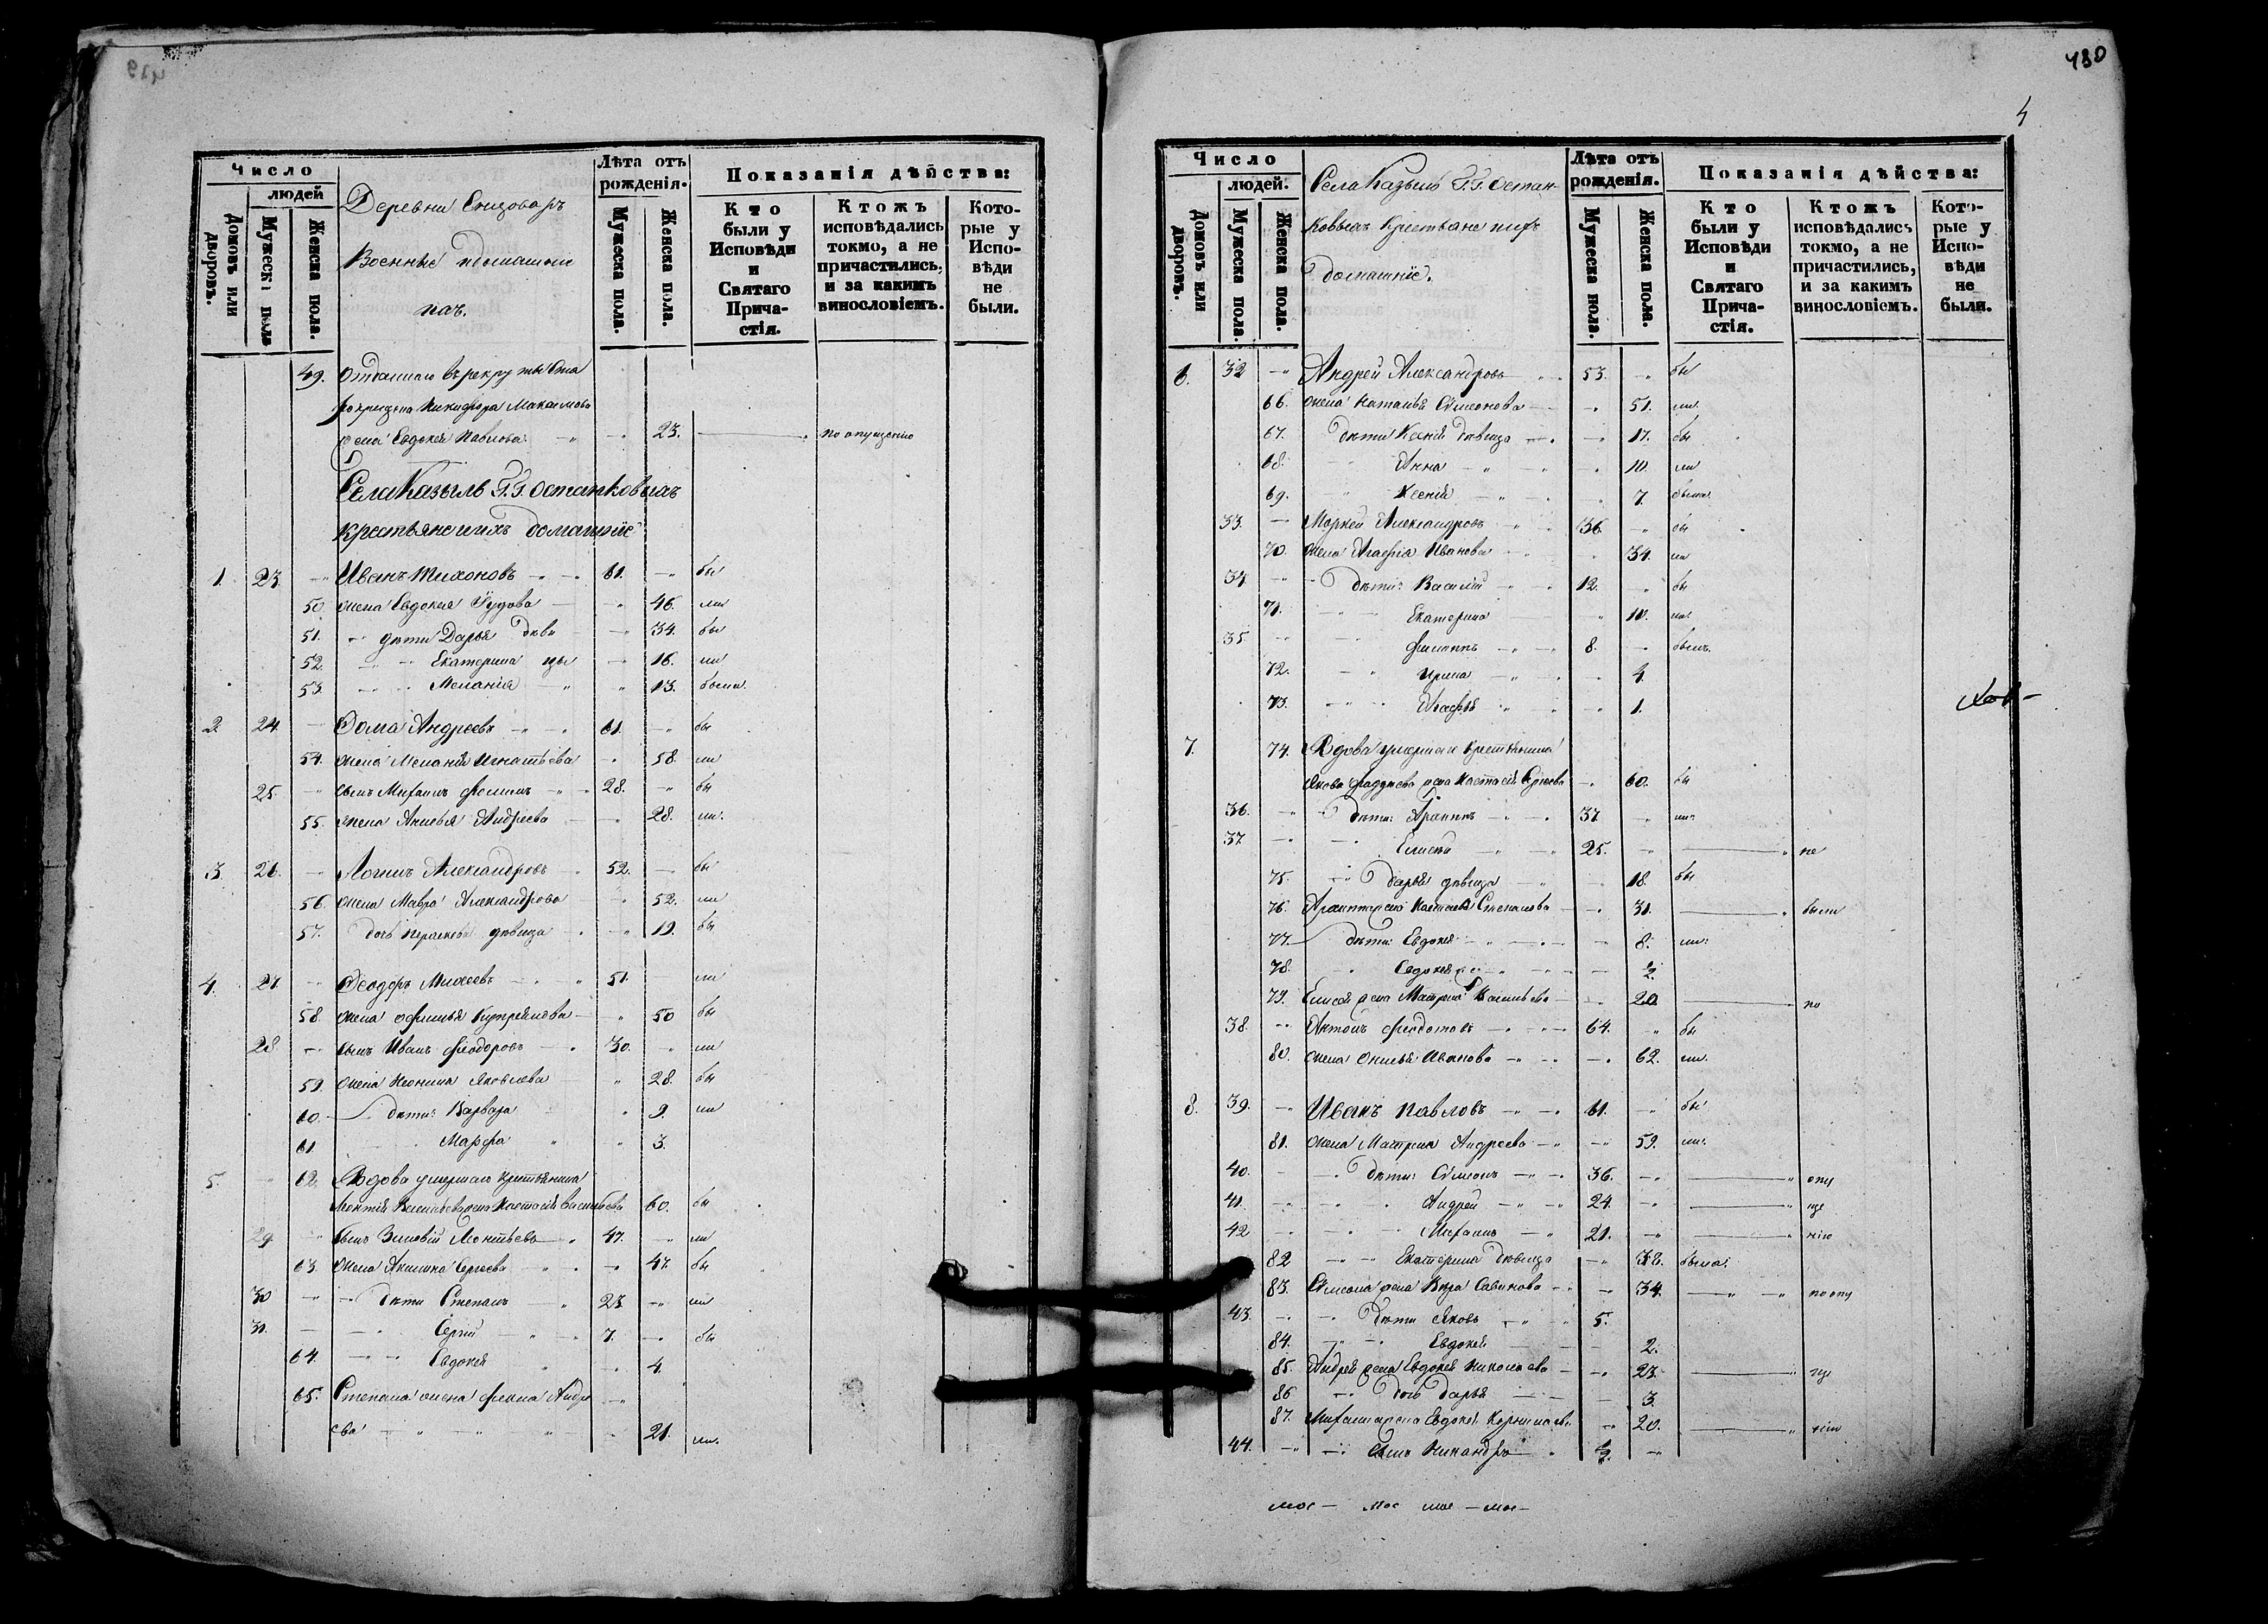 480
4
Число
людей
Домовъ или дворовъ.
Мужеска пола
Женска пола.
Деревни Енизоваръ
Военные домашни
ихъ.
Лѣта отъ рожденія.
Мужеска пола.
Женска пола.
Показанія дѣйства:
Кто были у Исповѣди и Святаго Прича-стія.
Ктожъ исповѣдались токмо, а не причастились, и за какимъ винословіемъ.
Кото-рые у Испо-вѣди не были.
49. Отданнаго въ рекруты
Никифора Максимова
жена Евдокея Павлова 23. по опущению
Села Казыль Г.г. Останковыхъ
крестьяне и ихъ домашніе
1. 23 Иванъ Тихоновъ 61. бы
50. жена Евдокея 46. ли
51. дѣти Дарья дѣви 34. бы
52. Екатерина цы 16. ли
53. Меланія 13. были.
2 24. Ѳома Андреевъ 61. бы
54. жена Меланія Игнатьева 58. ли
25. сынъ Михаилъ Фоминъ 28. бы
55. жена Анисья Андреева 28. ли.
3 26. Логинъ Александровъ 52. бы
56. жена Мавра Александрова 52. ли
57. дочь Параскева дѣвица 19. бы
4. 27. Ѳеодоръ Михеевъ 51. ли
58. жена Офимья Купреянова 50 бы
28. сынъ Иванъ Феодоровъ 30. ли
59. жена Неонила Яковлева 28. бы
60. дѣти: Варвара 9. ли
61 Марфа 3.
5. 62. Вдова умершаго крестьянина
Леонтія Васильева жена Настасія Васильева 60. бы
29 сынъ Зиновій Леонтьевъ 47. ли
63. жена Акилина Сергеева 47. бы
30 дѣти Степанъ 23. ли
31. Сергій 7. бы
64. Евдокея 4.
65. Степана жена Фекла Андре
ева 21. ли.
Число
людей.
Домовъ или дворовъ.
Мужеска пола.
Женска пола.
Села Казыль Г.г. Остан-
ковыхъ крестьяне и ихъ
домашніе.
Лѣта отъ рожденія.
Мужеска пола.
Женска пола.
Показанія дѣйства:
Кто были у Исповѣди и Святаго Прича-стія.
Ктожъ исповѣдались токмо, а не причастились, и за какимъ винословіемъ.
Кото-рые у Испо-вѣди не были.
6. 32 Андрей Александровъ 53. бы
66. жена Наталья Симеонова 51. ли.
67. дѣти Ксенія дѣвица 17. бы
68. Анна 10. ли
69. Ксенія 7. была.
33. Моркей Александровъ 36 бы
70. жена Агафія Иванова 34. ли
34 дѣти: Василій 12. бы
71. Екатерина 10. ли.
35. Филиппъ 8. былъ.
72. Ирина 4.
73. Агафья 1.
7. 74. Вдова умершаго крестьянина
Якова жена Настасія Сергеева 60. бы
36. дѣти: Архипъ 37 ли.
37 Елисей 25. не
75. Дарья дѣвица 18. бы
76. Архипа жена Настасья Степанова 31. были
77. дѣти: Евдокея 8. ли:
78. Евдокея 1/2.
79. Елисея жена Матрена Васильева 20 по
38. Антонъ Феодотовъ 64. бы
80. жена Онисья Иванова 62. ли.
8. 39. Иванъ Павловъ 61. бы
81. жена Матрена Андреева 59. ли.
40. дѣти: Симеонъ 36. опу
41. Андрей 24. ще
42 Михаилъ 21. нію
82 Екатерина дѣвица 38. была.
83. Симеона жена Вера Савинова 34. по опу
43. дѣти Яковъ 5.
84. Евдокея 2.
85. Андрея жена Евдокея Николаева 23. ще
86 дочь Дарья 3.
87. Михаила жена Евдокея Корнилаева 20. нію
44. сынъ Никандръ 1/2.